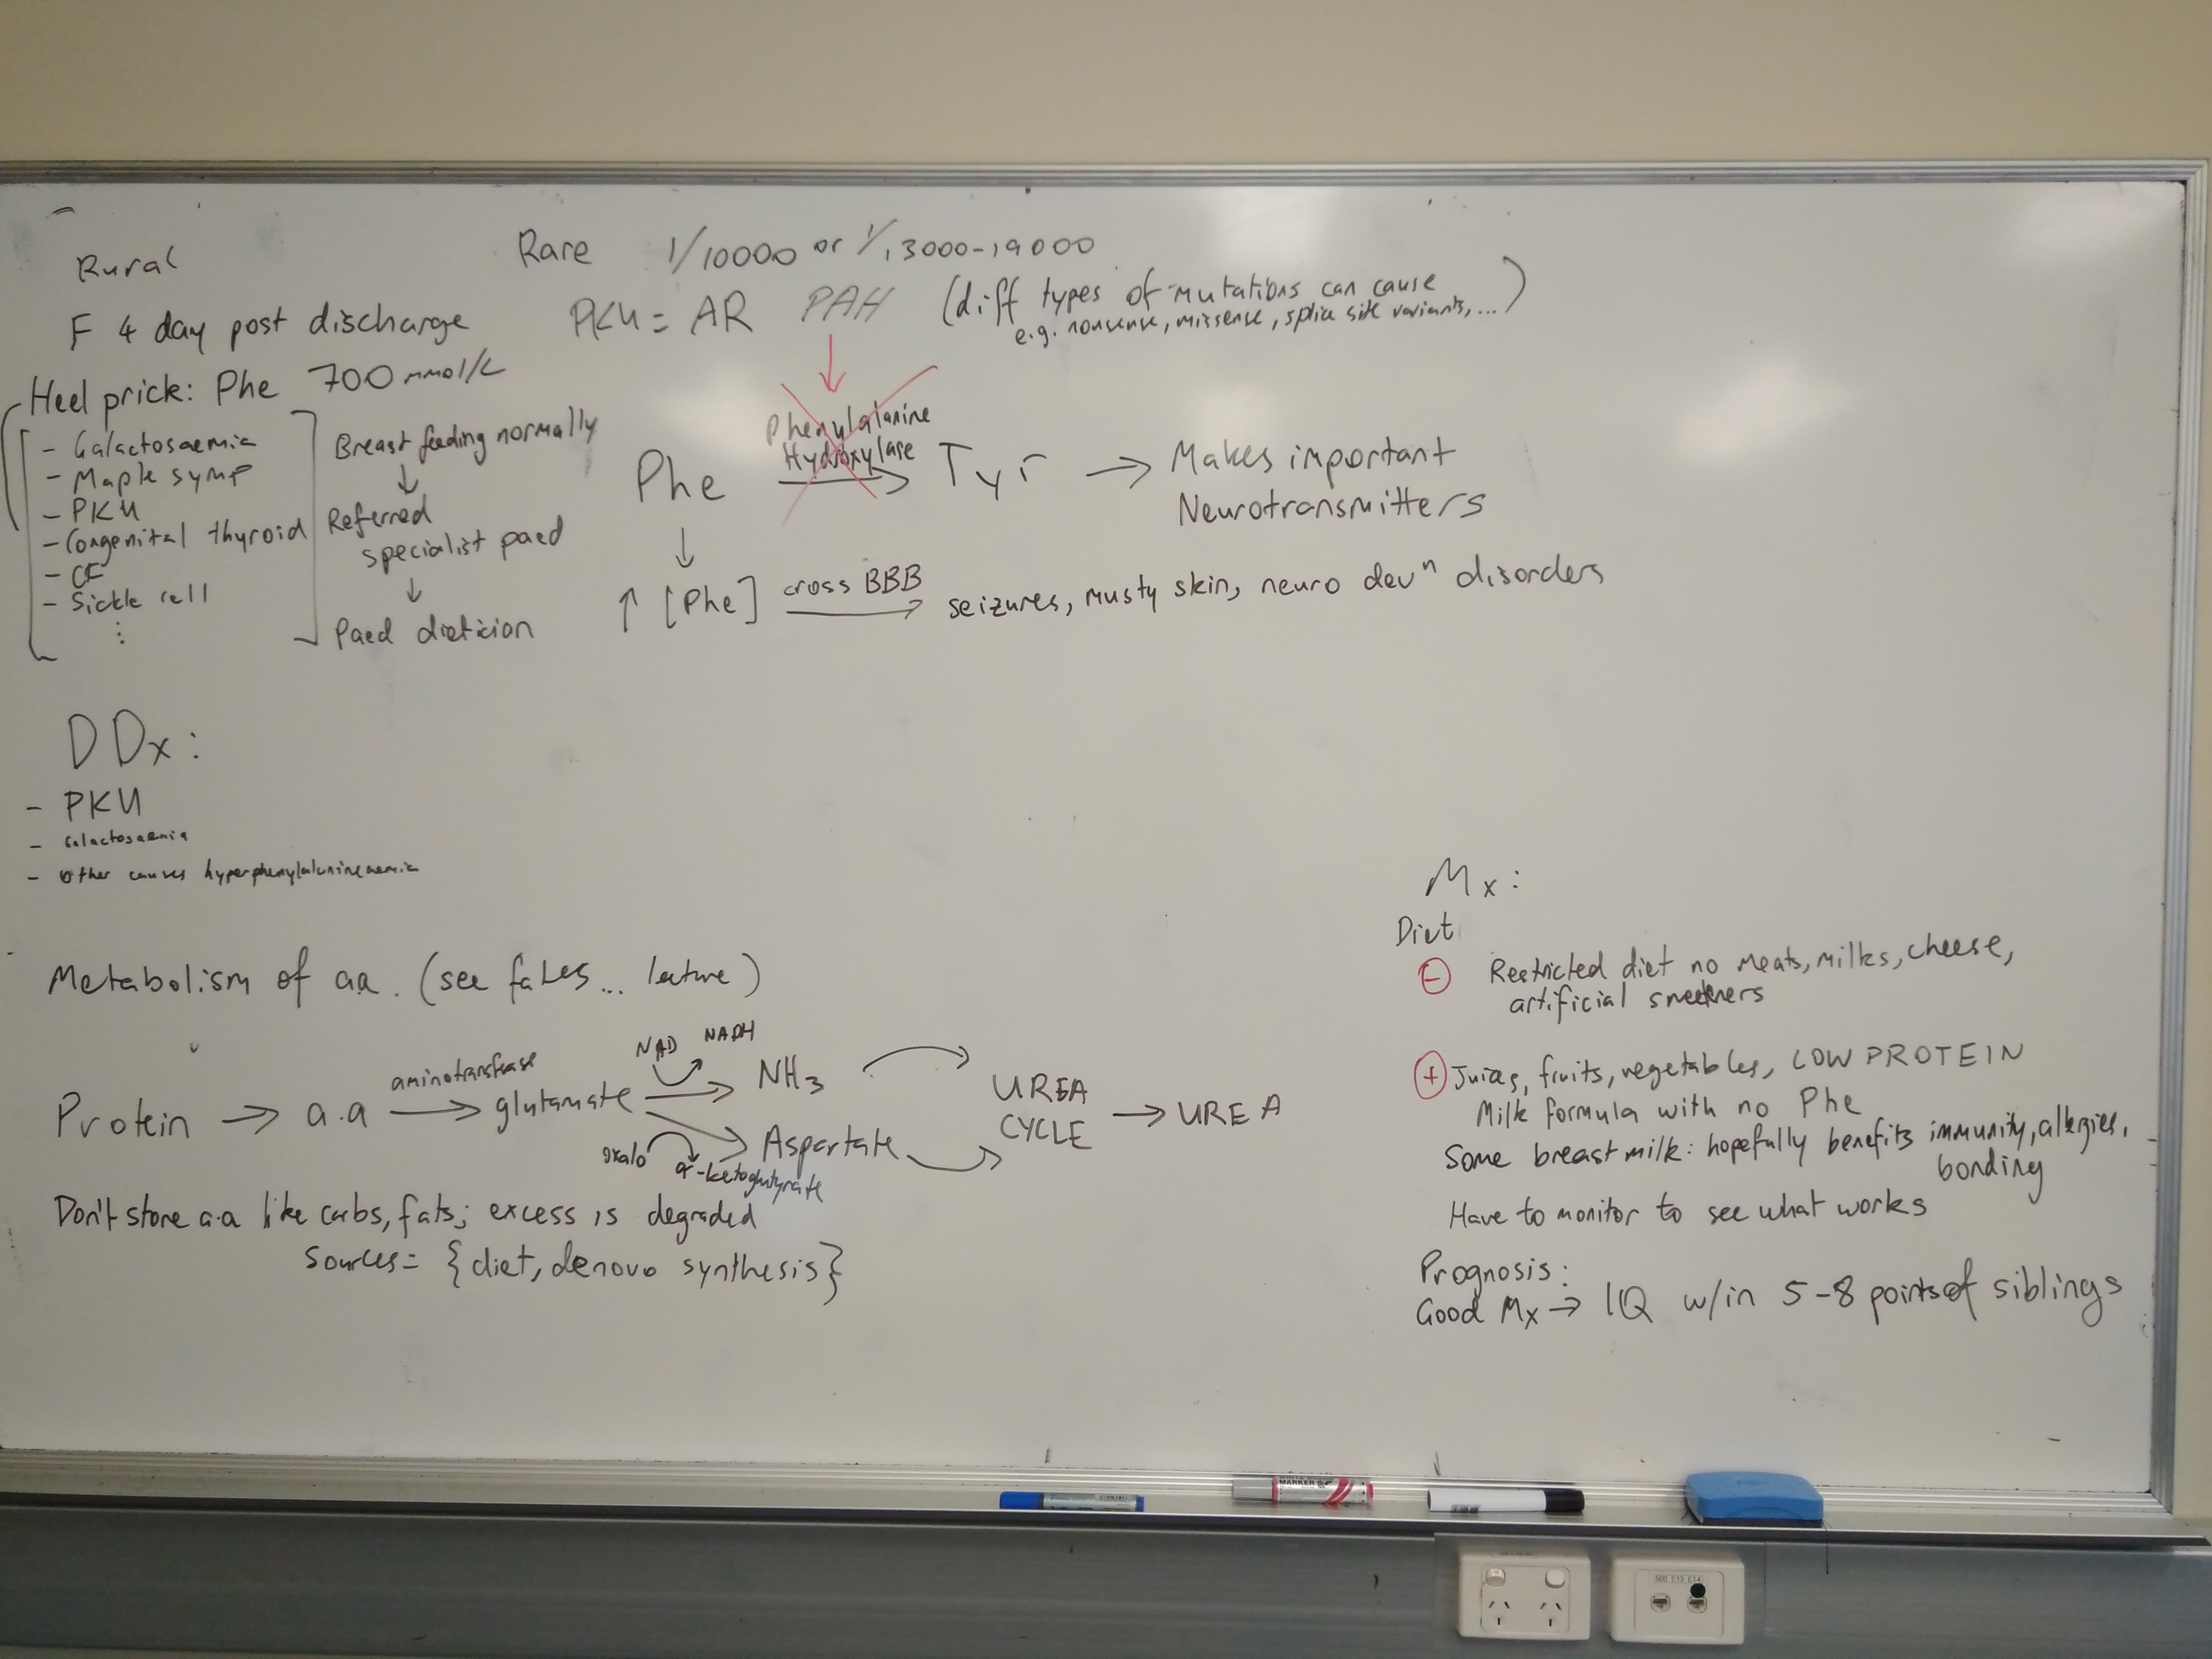 Rural
F 4 day post discharge
Heel prick: Phe 700 mmol/L
- Galactosaemia
- Maple syrup
- PKU
- Congenital thyroid
- CF
- Sickle cell
⋮
Breast feeding normally
↓
Referred
specialist paed
↓
Paed dietician
Rare 1/10000 or 1/13000-19000
PKU = AR PAH (diff types of mutations can cause
e.g. nonsense, missense, splice site variants, ...)
↓
Phenylalanine
Hydroxylase
Phe → Tyr → Makes important
Neurotransmitters
↓
↑ [Phe] cross BBB → seizures, musty skin, neuro devⁿ disorders
DDx:
- PKU
- Galactosaemia
- Other causes hyperphenylalaninaemia
Metabolism of aa. (see fates... lecture)
NAD NADH
aminotransferase
Protein → a.a → glutamate → NH3
Aspartate
oxalo α-ketoglutyrate
UREA
CYCLE → UREA
Don't store a.a like carbs, fats; excess is degraded
sources = {diet, denovo synthesis}
Mx:
Diet
⊖ Restricted diet no meats, milks, cheese,
artificial sweetners
⊕ Juices, fruits, vegetables, LOW PROTEIN
Milk formula with no Phe
Some breast milk: hopefully benefits immunity, allergies,
bonding
Have to monitor to see what works
Prognosis:
Good Mx → IQ w/in 5-8 points of siblings
MARKER
500 E13 E14